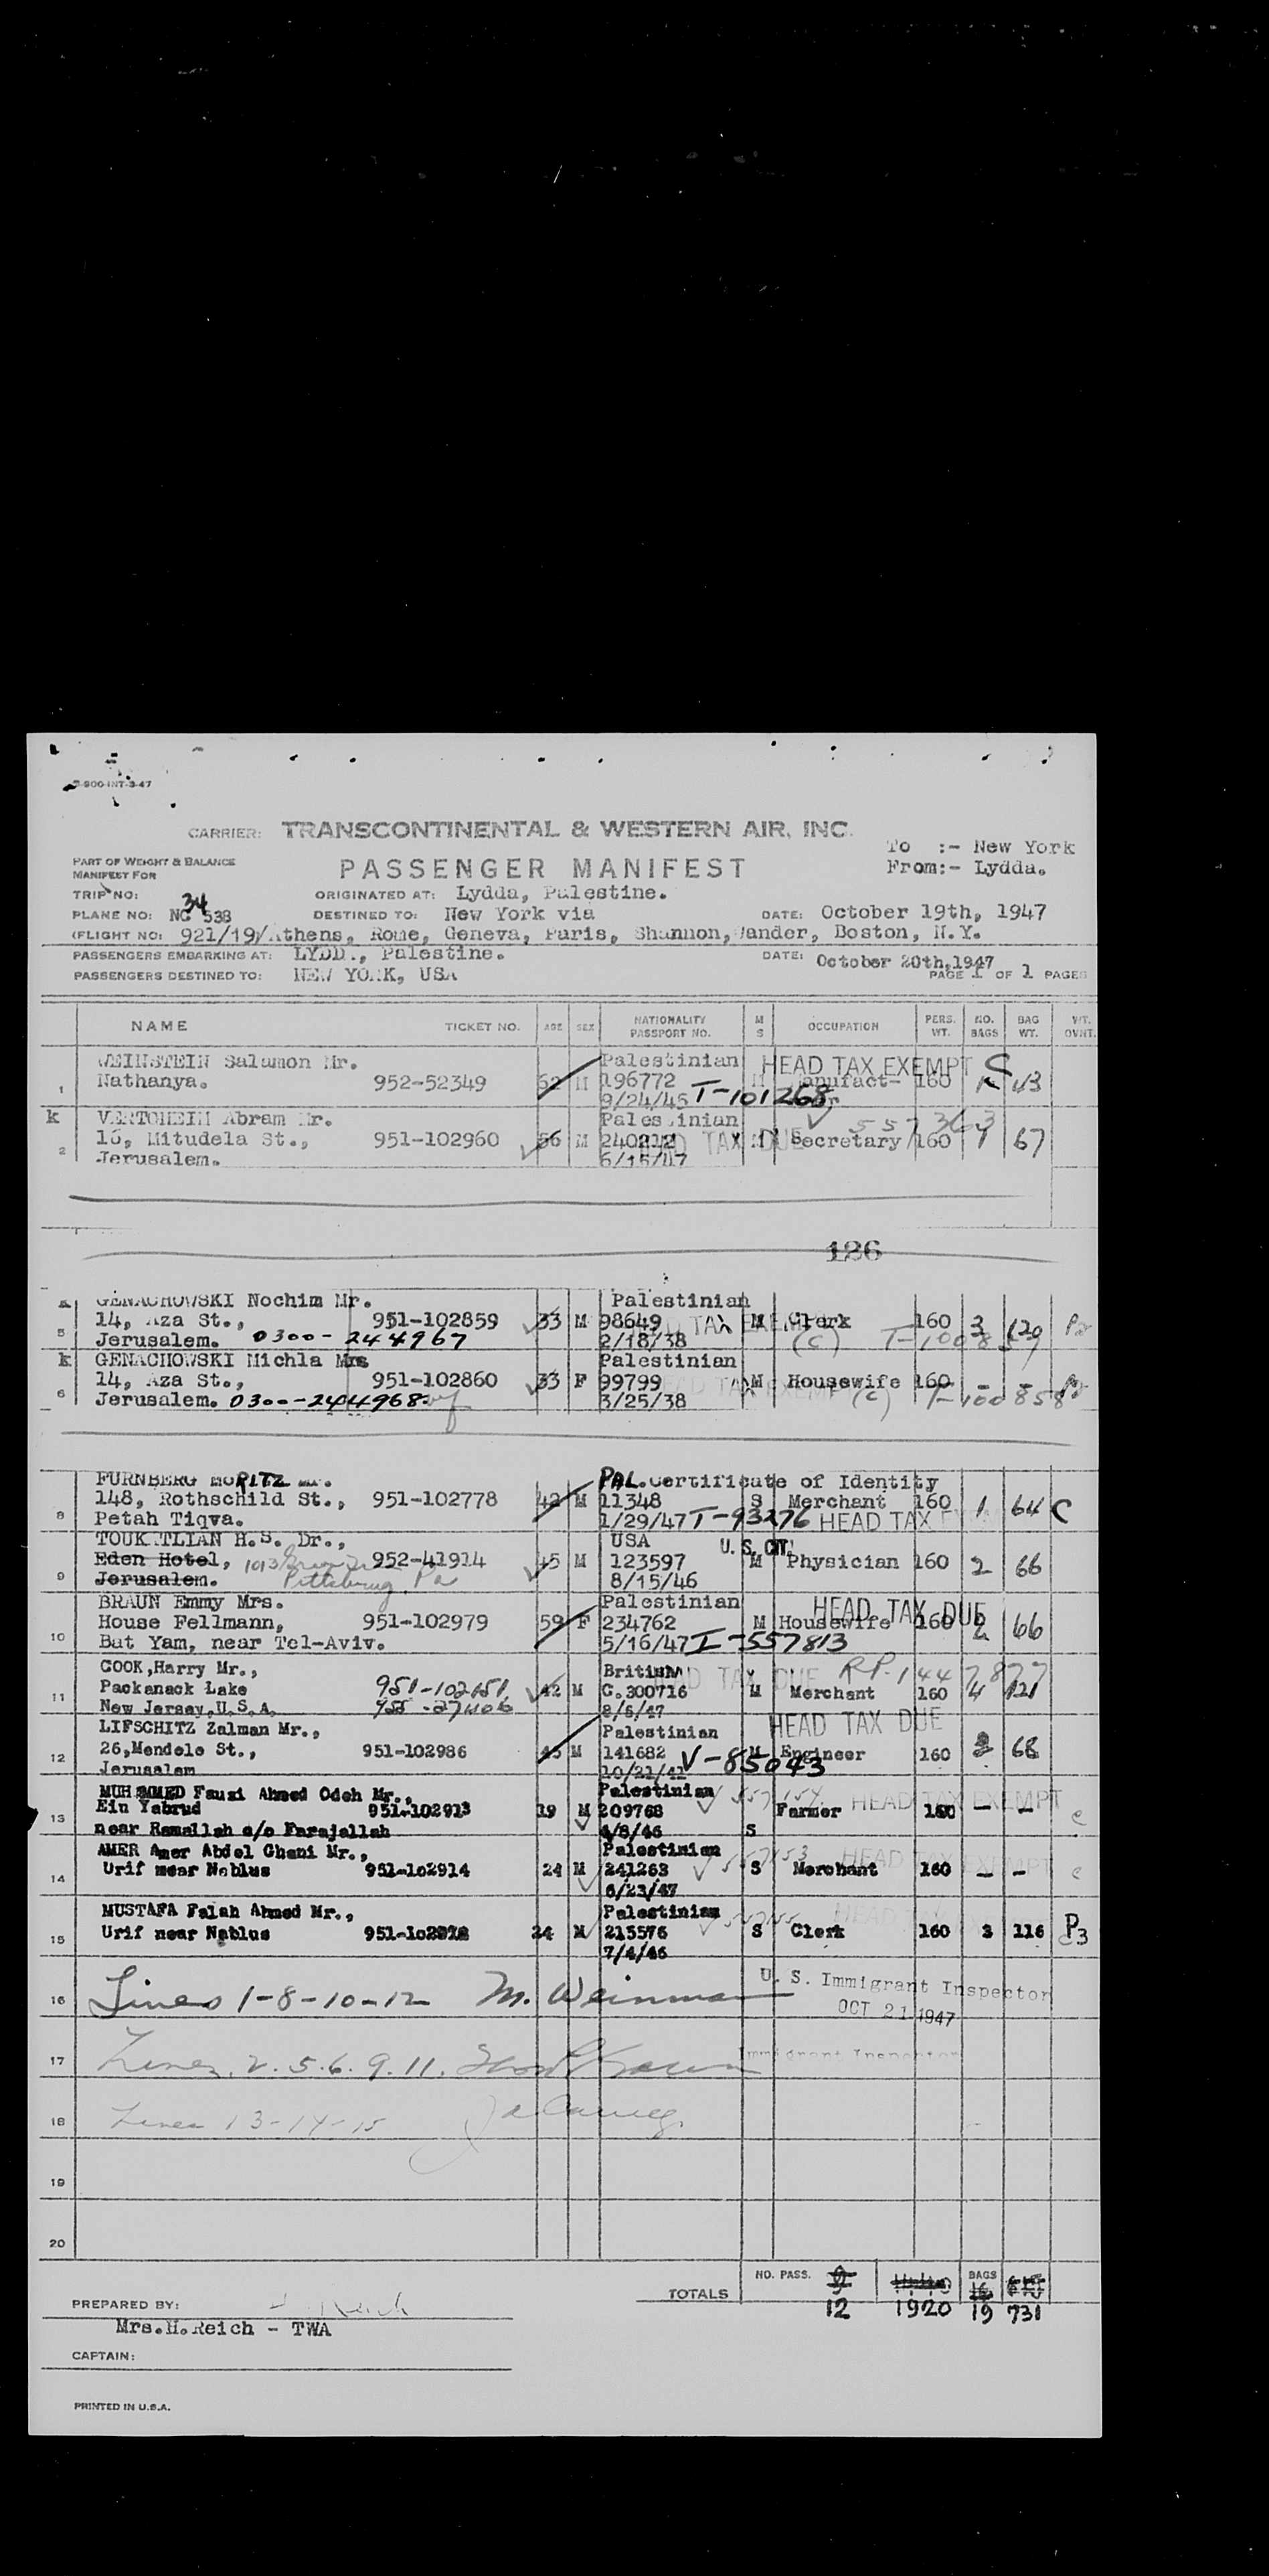 -900-INT-3-47
CARRIER: TRANSCONTINENTAL & WESTERN AIR, INC.
To :- New York
From:- Lydda.
PART OF WEIGHT & BALANCE
MANIFEST FOR
PASSENGER MANIFEST
TRIP NO: 34
ORIGINATED AT: Lydda, Palestine.
PLANE NO: NC 538
DESTINED TO: New York via
DATE: October 19th, 1947
(FLIGHT NO: 921/19 Athens, Rome, Geneva, Paris, Shannon, Gander, Boston, N.Y.
PASSENGERS EMBARKING AT: LYDD., Palestine.
DATE: October 20th,1947
PASSENGERS DESTINED TO: NEW YORK, USA
PAGE 1 OF 1 PAGES
NAME TICKET NO. AGE SEX NATIONALITY PASSPORT NO. M S OCCUPATION PERS. WT. NO. BAGS BAG WT. WT. OVNT.
WEINSTEIN Salamon Mr. Palestinian HEAD TAX EXEMPT C
1 Nathanya. 952-52349 62 M 196772 M Manufact- 160 1 43
9/24/45 T-101268
k VERTOHEIM Abram Mr. Palestinian 557363
2 16, Mitudela St., 951-102960 56 M 240212 M Secretary 160 1 67
HEAD TAX DUE
Jerusalem. 6/15/47
126
k GENACHOWSKI Nochim Mr. Palestinian
5 14, Aza St., 951-102859 33 M 98649 M Clerk 160 3 120
TAX EXEMPT
Jerusalem. 0300-244967 2/18/38 (C)
k GENACHOWSKI Michla Mrs Palestinian
6 14, Aza St., 951-102860 33 F 99799 M Housewife 160 - -
HEAD TAX EXEMPT
Jerusalem. 0300-244968 3/25/38 (C) T-100858
FURNBERG MORITZ Mr. PAL. Certificate of Identity
8 148, Rothschild St., 951-102778 42 M 11348 S Merchant 160 1 64 C
Petah Tiqva. 1/29/47 T-93276 HEAD TAX EXEMPT
TOUKATLIAN H.S. Dr., USA U.S. CIT.
9 Eden Hotel, 1013 952-41914 45 M 123597 M Physician 160 2 66
Jerusalem. Pittsburg, Pa 8/15/46
BRAUN Emmy Mrs. Palestinian HEAD TAX DUE
10 House Fellmann, 951-102979 59 F 234762 M Housewife 160 2 66
Bat Yam, near Tel-Aviv. 5/16/47 I-557813
COOK,Harry Mr., British HEAD TAX DUE R.P. 1447877
11 Packanack Lake 951-102151 42 M C.300716 M Merchant 160 4 121
New Jersey,U.S.A. 955-27406 8/6/47
LIFSCHITZ Zalman Mr., Palestinian HEAD TAX DUE
12 26,Mendele St., 951-102986 45 M 141682 M Engineer 160 2 68
Jerusalem 10/21/41 V-85043
MUHAMMED Fauzi Ahmed Odeh Mr., Palestinian
13 Ein Yabrud 951-102913 19 M 209768 Farmer 160 - - C
HEAD TAX EXEMPT
near Ramallah c/o Farajallah 4/8/46 S
AMER Amer Abdel Ghani Mr., Palestinian 557153 HEAD TAX EXEMPT
14 Urif near Nablus 951-102914 24 M 241263 S Merchant 160 - - C
6/23/47
MUSTAFA Falah Ahmed Mr., Palestinian HEAD TAX EXEMPT
15 Urif near Nablus 24 M 215576 S Clerk 160 3 116 P3
7/4/46
16 Lines 1-8-10-12 M. Weinman U. S. Immigrant Inspector
OCT 21 1947
17 Lines. 2. 5. 6. 9. 11. Immigrant Inspector
18 Lines 13-14-15
19
20
TOTALS NO. PASS. 12 1920 BAGS 19 731
PREPARED BY: H. Reich
Mrs.H.Reich - TWA
CAPTAIN:
PRINTED IN U.S.A.